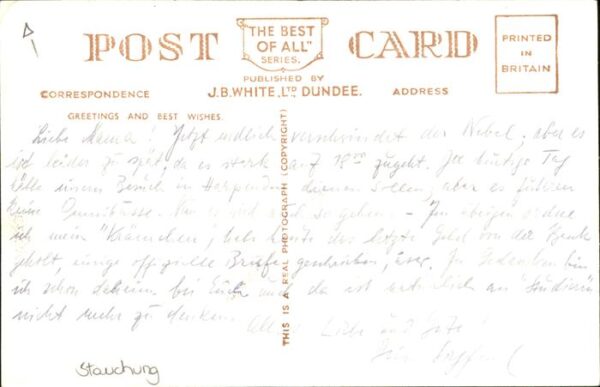 POST CARD
"THE BEST
OF ALL"
SERIES.
PRINTED
IN
BRITAIN
PUBLISHED BY
J.B.WHITE, LTD DUNDEE.
CORRESPONDENCE
ADDRESS
GREETINGS AND BEST WISHES.
THIS IS A REAL PHOTOGRAPH (COPYRIGHT)
Liebe Mama! Jetzt endlich verschwindet der Nebel, aber es
ist leider zu spät, da es stark auf zugeht. Der heutige Tag
hätte einem Besuch in Harpenden dienen sollen, aber es führen
keine es wird auch so gehen - Im übrigen ordne
ich mein "Krämchen", hab heute das letzte Geld von der Bank
geholt, einige Briefe geschrieben, usw. In Gedanken bin
ich schon daheim bei Euch und da ist natürlich an "Studium"
nicht mehr zu denken. Alles Liebe und Gute!
Stauchung